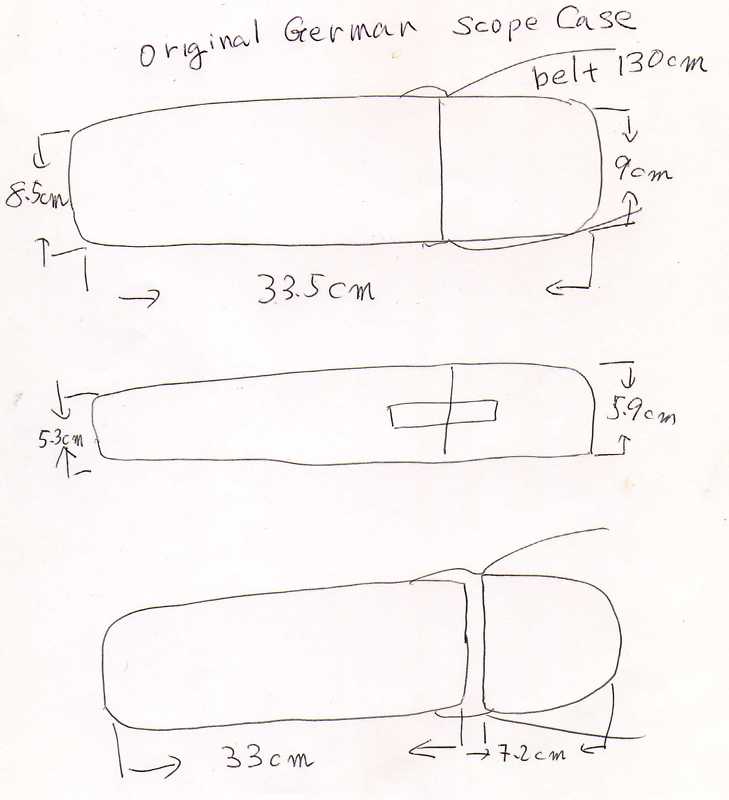 Original German Scope Case
belt 130cm
8.5cm
9cm
33.5cm
5.3cm
5.9cm
33cm
7.2cm